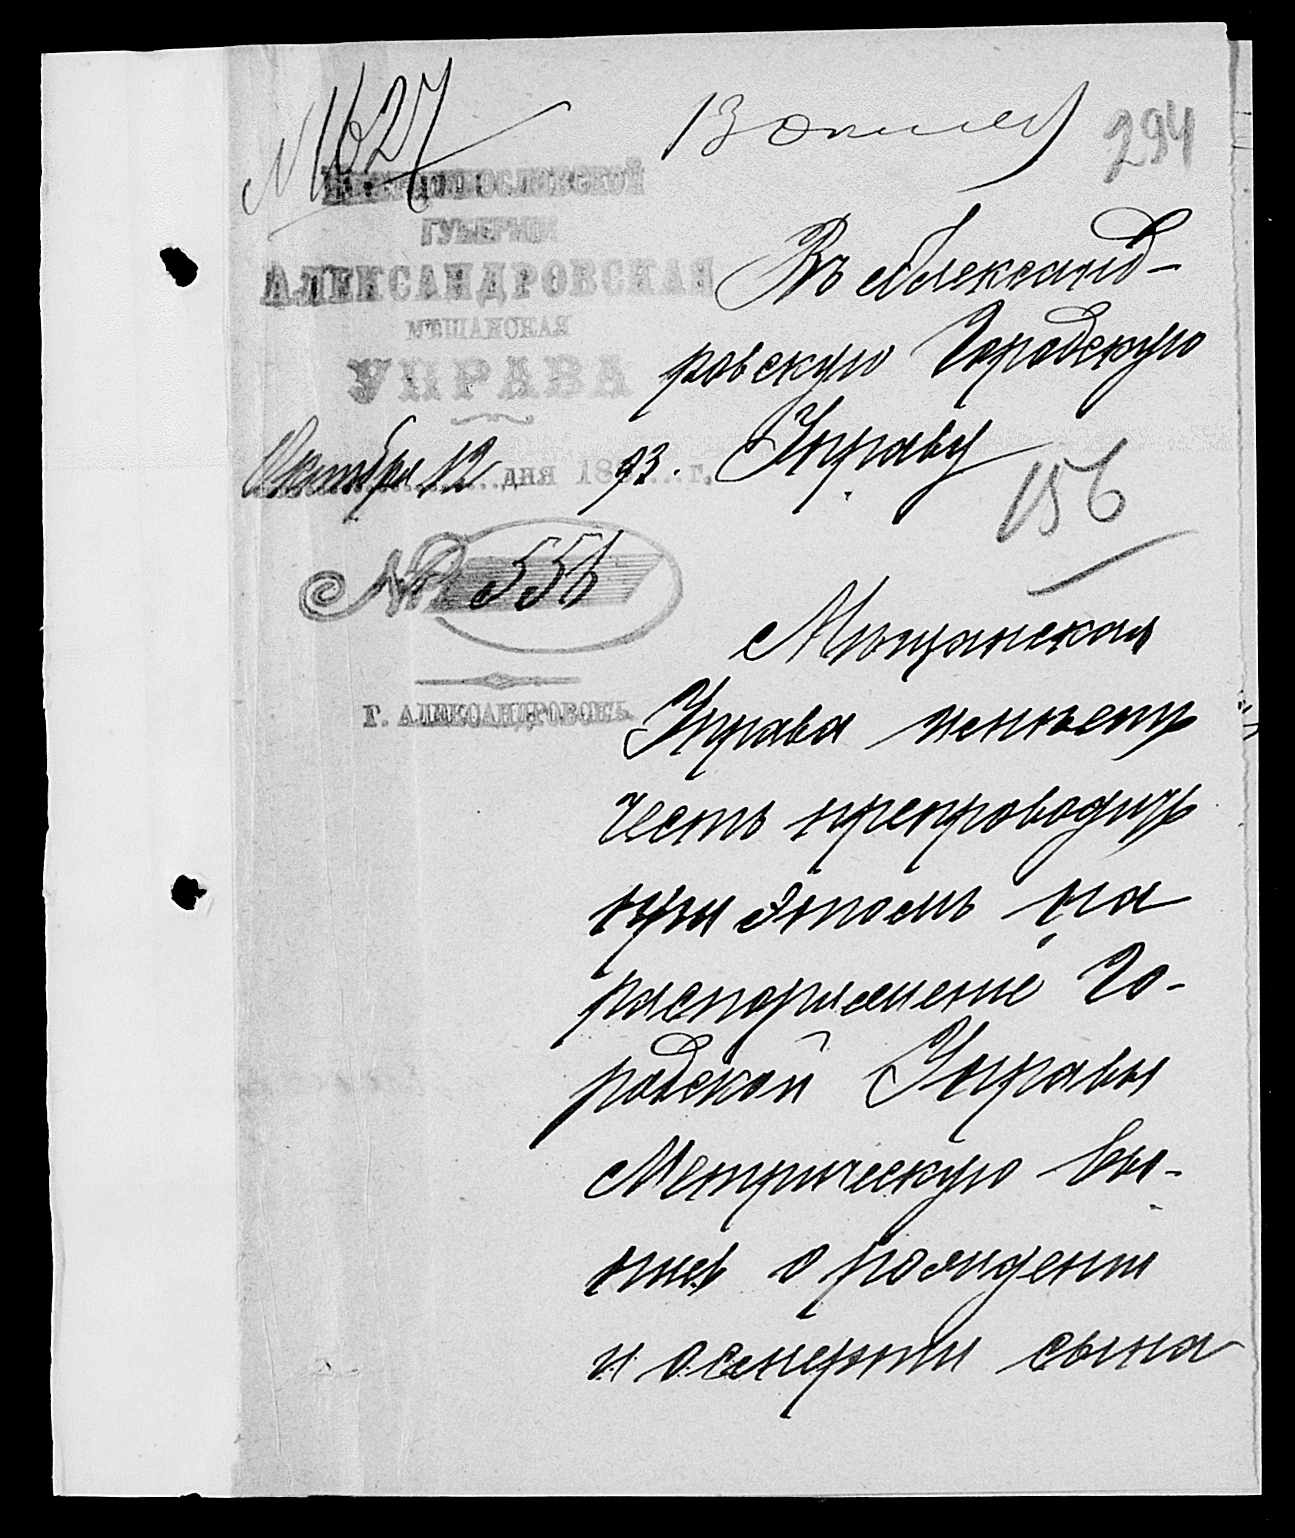 № 1627
13 Октября
294
ЕКАТЕРИНОСЛАВСКОЙ
ГУБЕРНІИ
АЛЕКСАНДРОВСКАЯ
МѢЩАНСКАЯ
УПРАВА
Октября 12 дня 1893. г.
№ 556
Г. АЛЕКСАНДРОВСКЪ.
Въ Александ-
ровскую Городскую
Управу
156
Мѣщанская
Управа имѣетъ
честь препроводить
при этомъ на
распоряженіе Го-
родской Управы
Метрическую вы-
пись о рожденіи
и о смерти сына